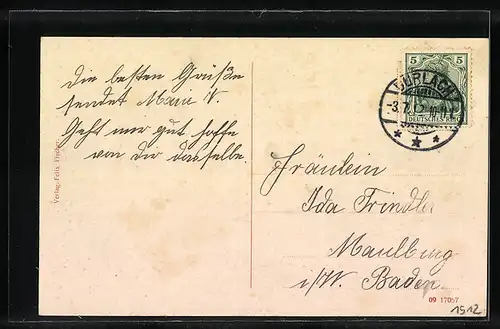 Die besten Grüße
sendet Marie V.
Geht mir gut hoffe
von dir dasselbe.
5 5
DURLACH
-3.7.12.
DEUTSCHES REICH
Fräulein
Ida Trindler
Maulburg
i/W. Baden
Verlag-Felix
09 17057
1912